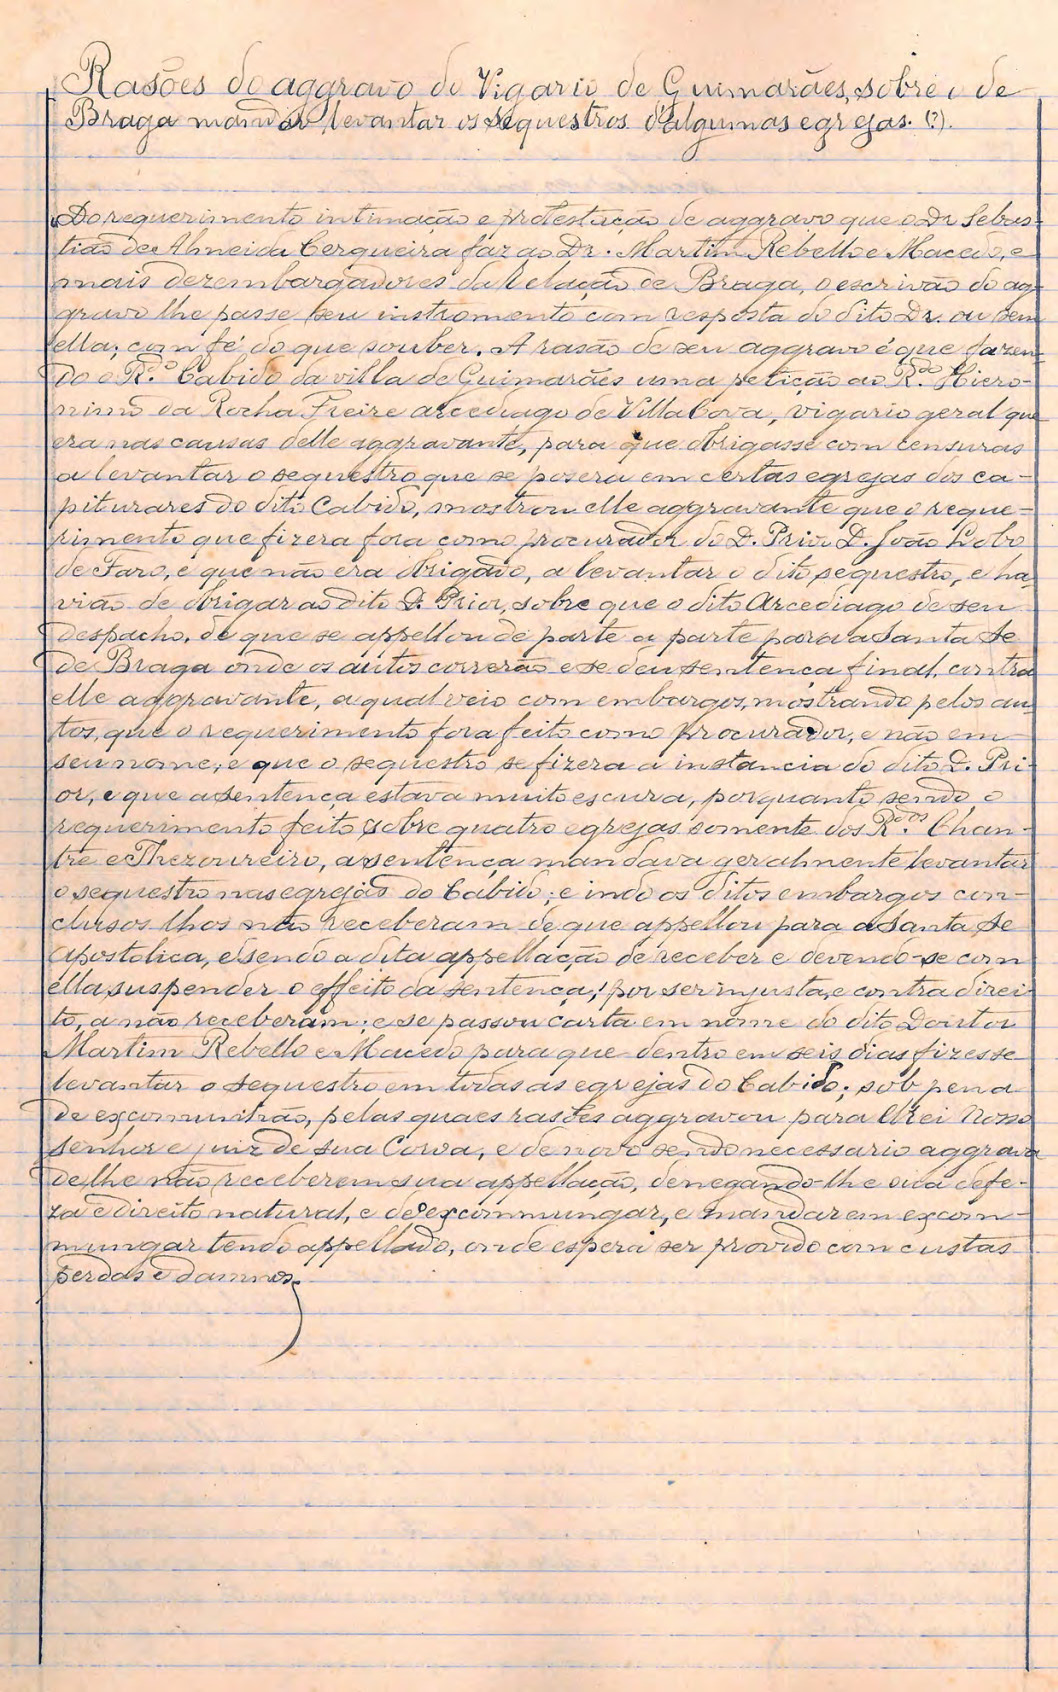 Rasões do aggravo do Vigario de Guimarães, sobre o de
Braga mandar levantar os sequestros d'algumas egrejas. (?).
Do requerimento intimação e protestação de aggravo que o Dr Sebas-
tião de Almeida Cerqueira faz ao Dr. Martim Rebello e Macedo, e
mais dezembargadores da Relação de Braga, o escrivão do ag-
gravo lhe passe seu instromento com resposta do dito Dr. ou sem
ella; com fé do que souber. A rasão de seu aggravo é que fazen-
do o R.º Cabido da villa de Guimarães uma petição ao R.do Hiero-
nimo da Rocha Freire arcediago de Villa Cova, vigario geral que
era nas causas delle aggravante, para que obrigasse com censuras
a levantar o sequestro que se pozera em certas egrejas dos ca-
piturares do dito Cabido, mostrou elle aggravante que o reque-
rimento que fizera fora como procurador do D. Prior D. João Lobo
de Faro, e que não era obrigado, a levantar o dito sequestro, e ha-
vião de obrigar ao dito D. Prior, sobre que o dito Arcediago deseu
despacho, de que se appellou de parte a parte para a Santa Se
de Braga onde os autos correrão e se deu sentença final, contra
elle aggravante, a qual veio com embargos, mostrando pelos au-
tos, que o requerimento fora feito como procurador, e não em
seu nome; e que o sequestro se fizera a instancia do dito D. Pri-
or, e que a sentença estava muito escura, porquanto sendo o
requerimento feito sobre quatro egrejas somente dos R.dos Chan-
tre e Thezoureiro, a sentença mandava geralmente levantar
o sequestro nas egrejas do Cabido; e indo os ditos embargos con-
clusos lhos não receberam de que appellou para a Santa Se
Apostolica, e sendo a dita appellação de receber e devendo-se com
ella suspender o effeito da sentença, por ser injusta, e contra direi-
to, a não receberam; e se passou carta em nome do dito Doutor
Martim Rebello e Macedo para que dentro em seis dias fizesse
levantar o sequestro em todas as egrejas do Cabido; sob pena
de excomunhão, pelas quaes rasões aggravou para Elrei Nosso
senhor e juiz de sua Coroa, e de novo sendo necessario aggrava
de lhe não receberem sua appellação, denegando-lhe sua defe-
za e direito natural, e de excommungar, e mandarem excom-
mungar tendo appellado, onde espera ser provido com custas
perdas e damnos.